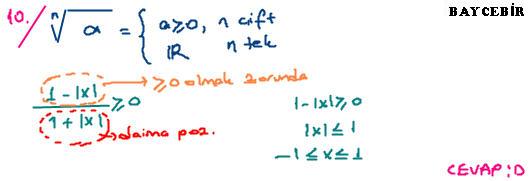 BAYCEBİR
10./ ⁿ√a = { a≥0, n çift
ℝ n tek
1-|x| / 1+|x| ≥0
≥0 olmak zorunda
daima poz.
1-|x|≥0
|x|≤1
-1≤x≤1
CEVAP:D